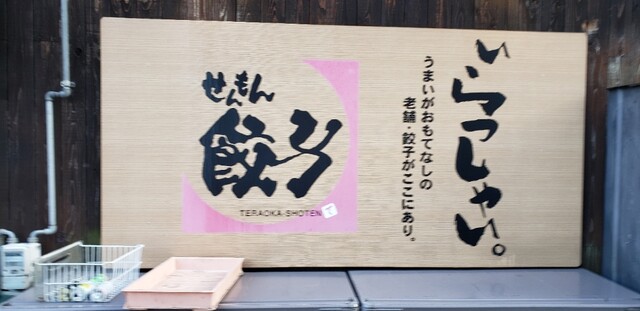 いらっしゃい。
うまいがおもてなしの
老舗・餃子がここにあり。
せんもん
餃子
TERAOKA-SHOTEN